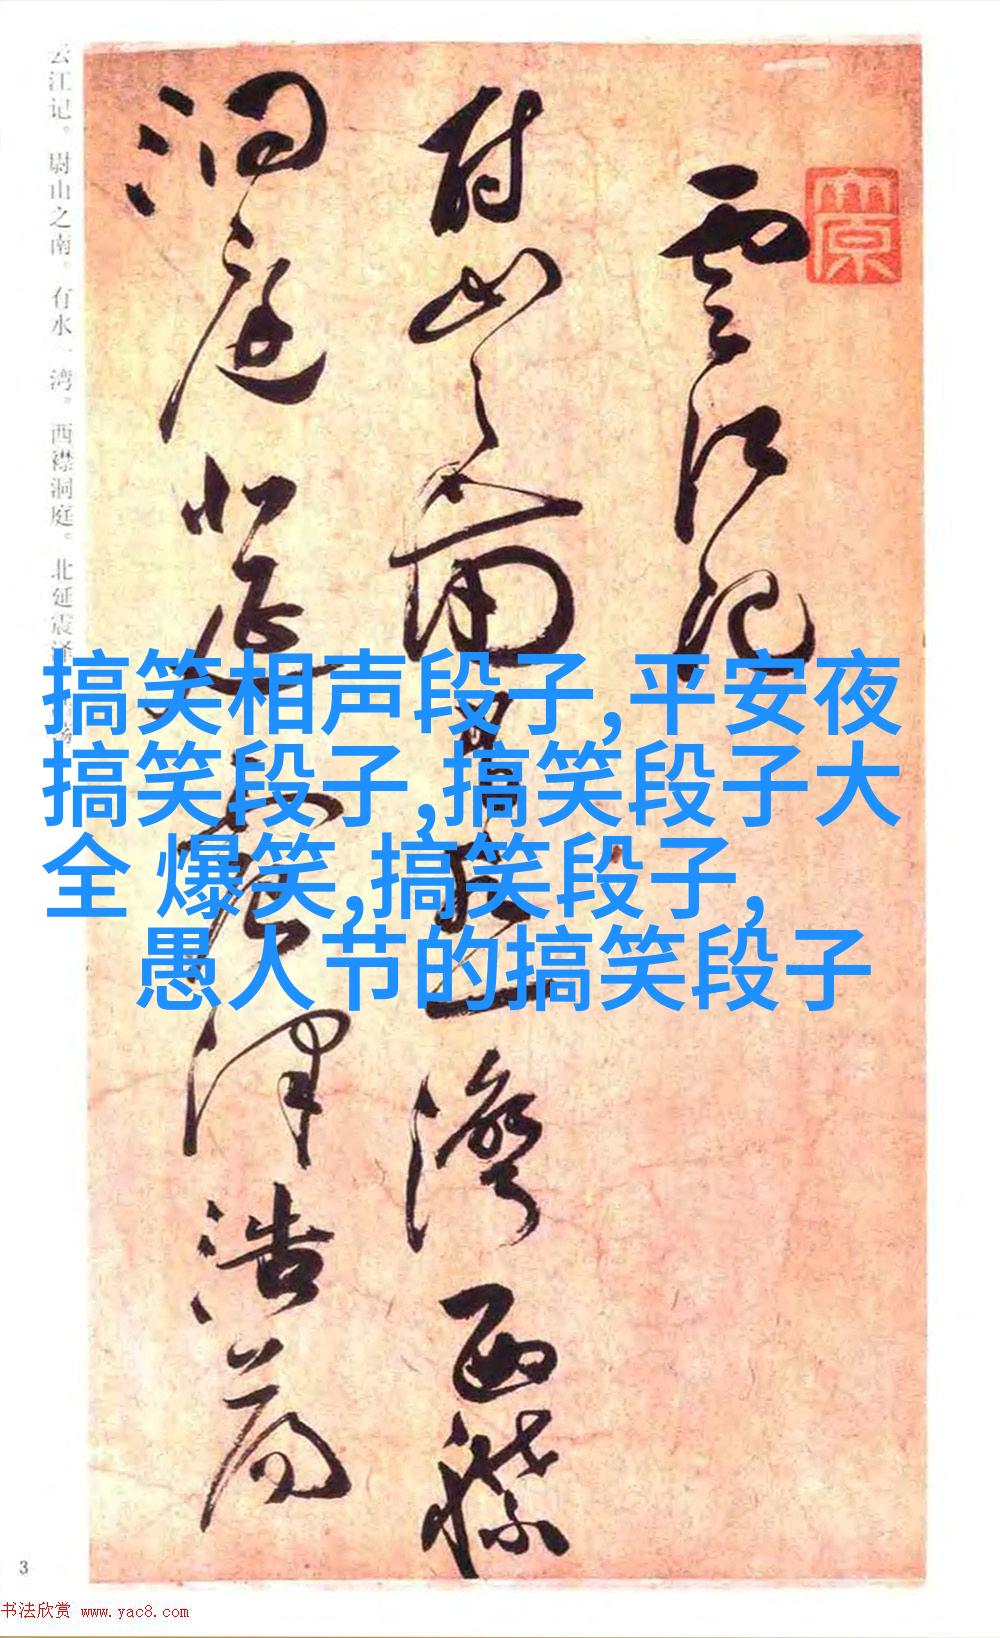 太原
雲江記
尉山之南有水一灣西襟
洞庭北延震澤浩蕩
云江记。尉山之南。有水一湾。西襟洞庭。北延震泽
搞笑相声段子,平安夜
搞笑段子,搞笑段子大
全 爆笑,搞笑段子,
愚人节的搞笑段子
3
书法欣赏 www.yac8.com